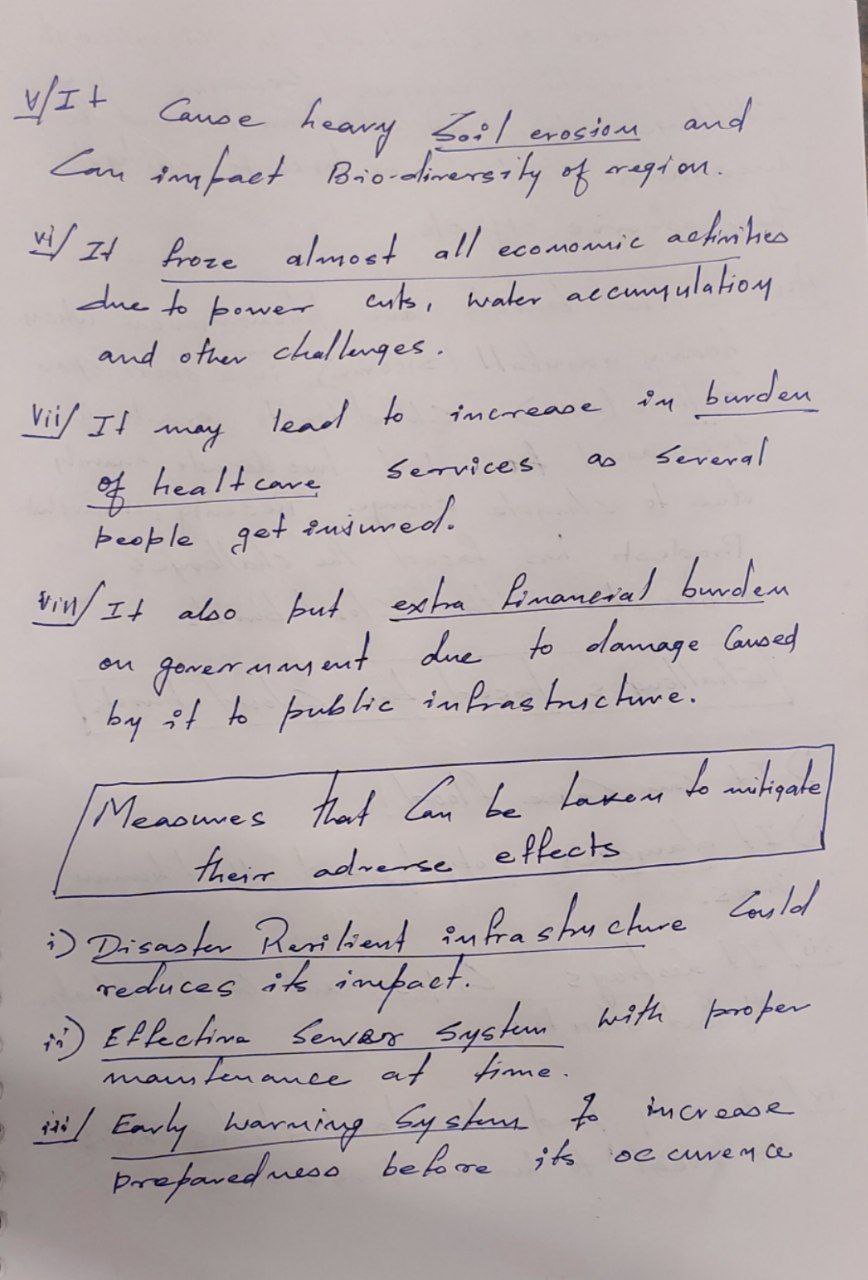 v/ It Cause heavy Soil erosion and
Can impact Bio-diversity of region.
vi/ It froze almost all economic activities
due to power cuts, water accumulation
and other challenges.
vii/ It may lead to increase in burden
of healthcare services as several
people get injured.
viii/ It also put extra financial burden
on government due to damage Caused
by it to public infrastructure.
Measures that Can be taken to mitigate
their adverse effects
i) Disaster Resilient infrastructure Could
reduces its impact.
ii) Effective Sewer System with proper
maintenance at time.
iii/ Early Warning System to increase
preparedness before its occurence